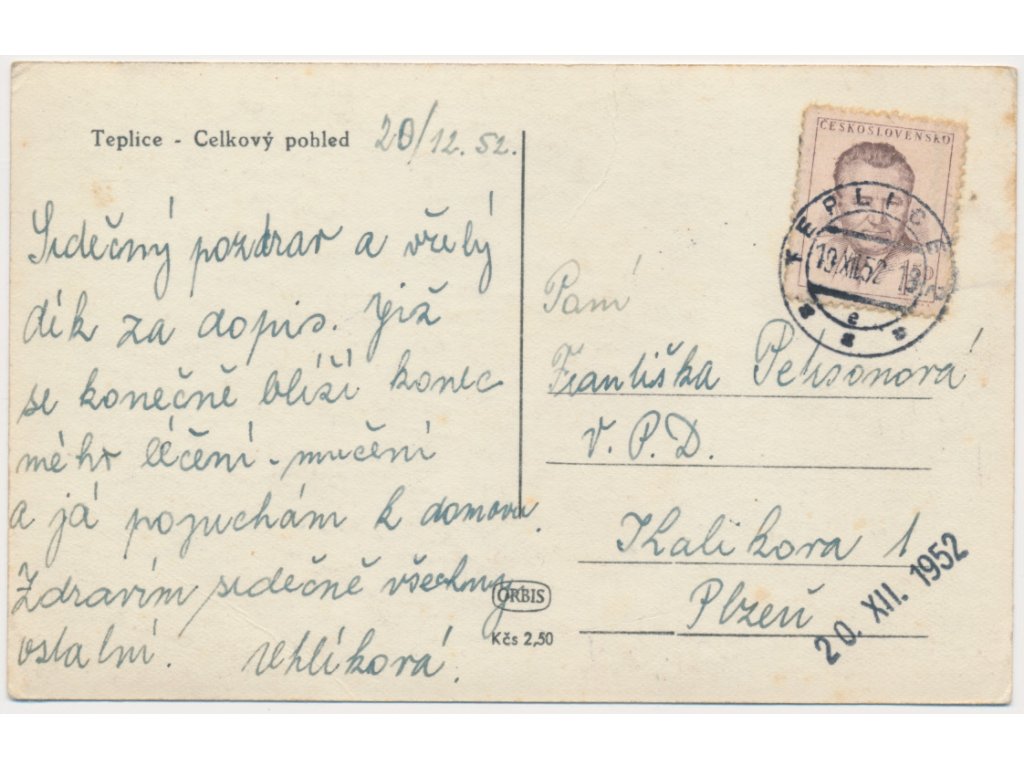 Teplice - Celkový pohled 20/12. 52.
Srdečný pozdrav a vřelý
dík za dopis. Již
se konečně blíží konec
mého léčení - mučení
a já pozuchám k domovu.
Zdravím srdečně všechny
ostatní. Uhlíková.
ČESKOSLOVENSKO
TEPLICE
19.XII.52 13
e
Paní
Františka
V. P. D.
Kalikova 1
Plzeň
20. XII. 1952
ORBIS
Kčs 2,50